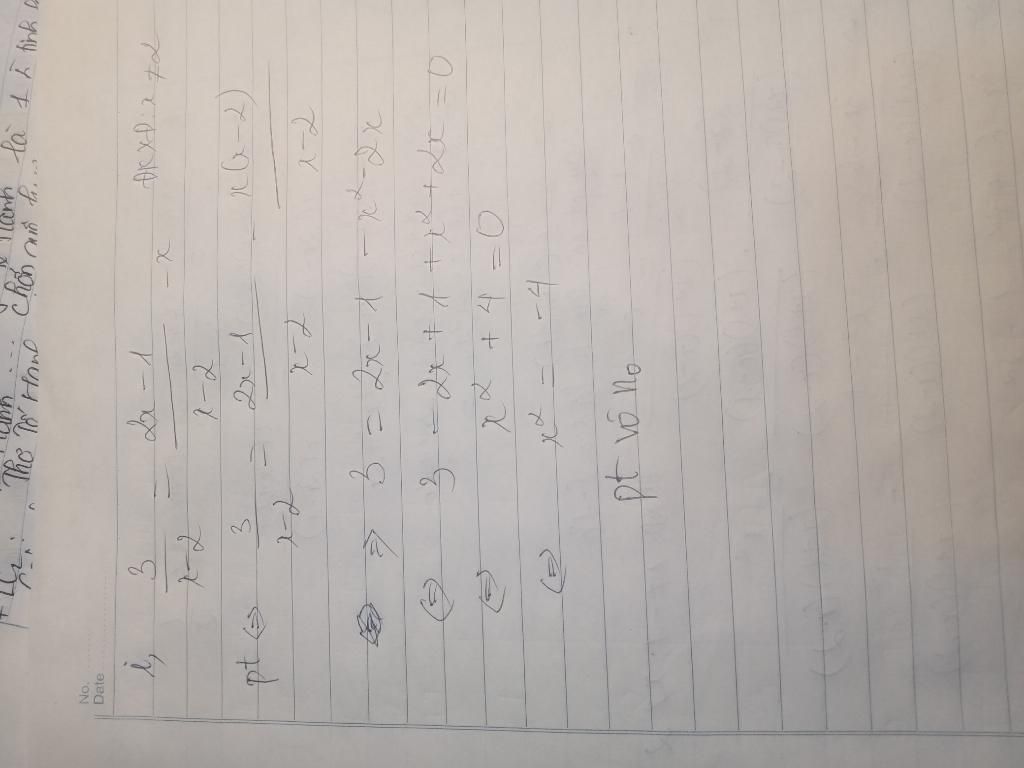 No.
Date
i, 3/(x-2) = (2x-1)/(x-2) - x ĐKXĐ: x ≠ 2
pt ⇔ 3/(x-2) = (2x-1)/(x-2) - x(x-2)/(x-2)
⇒ 3 = 2x - 1 - x² - 2x
⇔ 3 - 2x + 1 + x² + 2x = 0
⇔ x² + 4 = 0
⇔ x² = -4
pt vô no